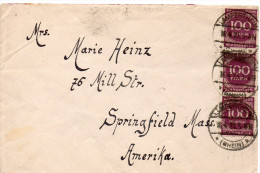 Mrs.
Marie Heinz
76 Mill Str.
Springfield Mass.
Amerika.
100
100
100
(RHEIN)